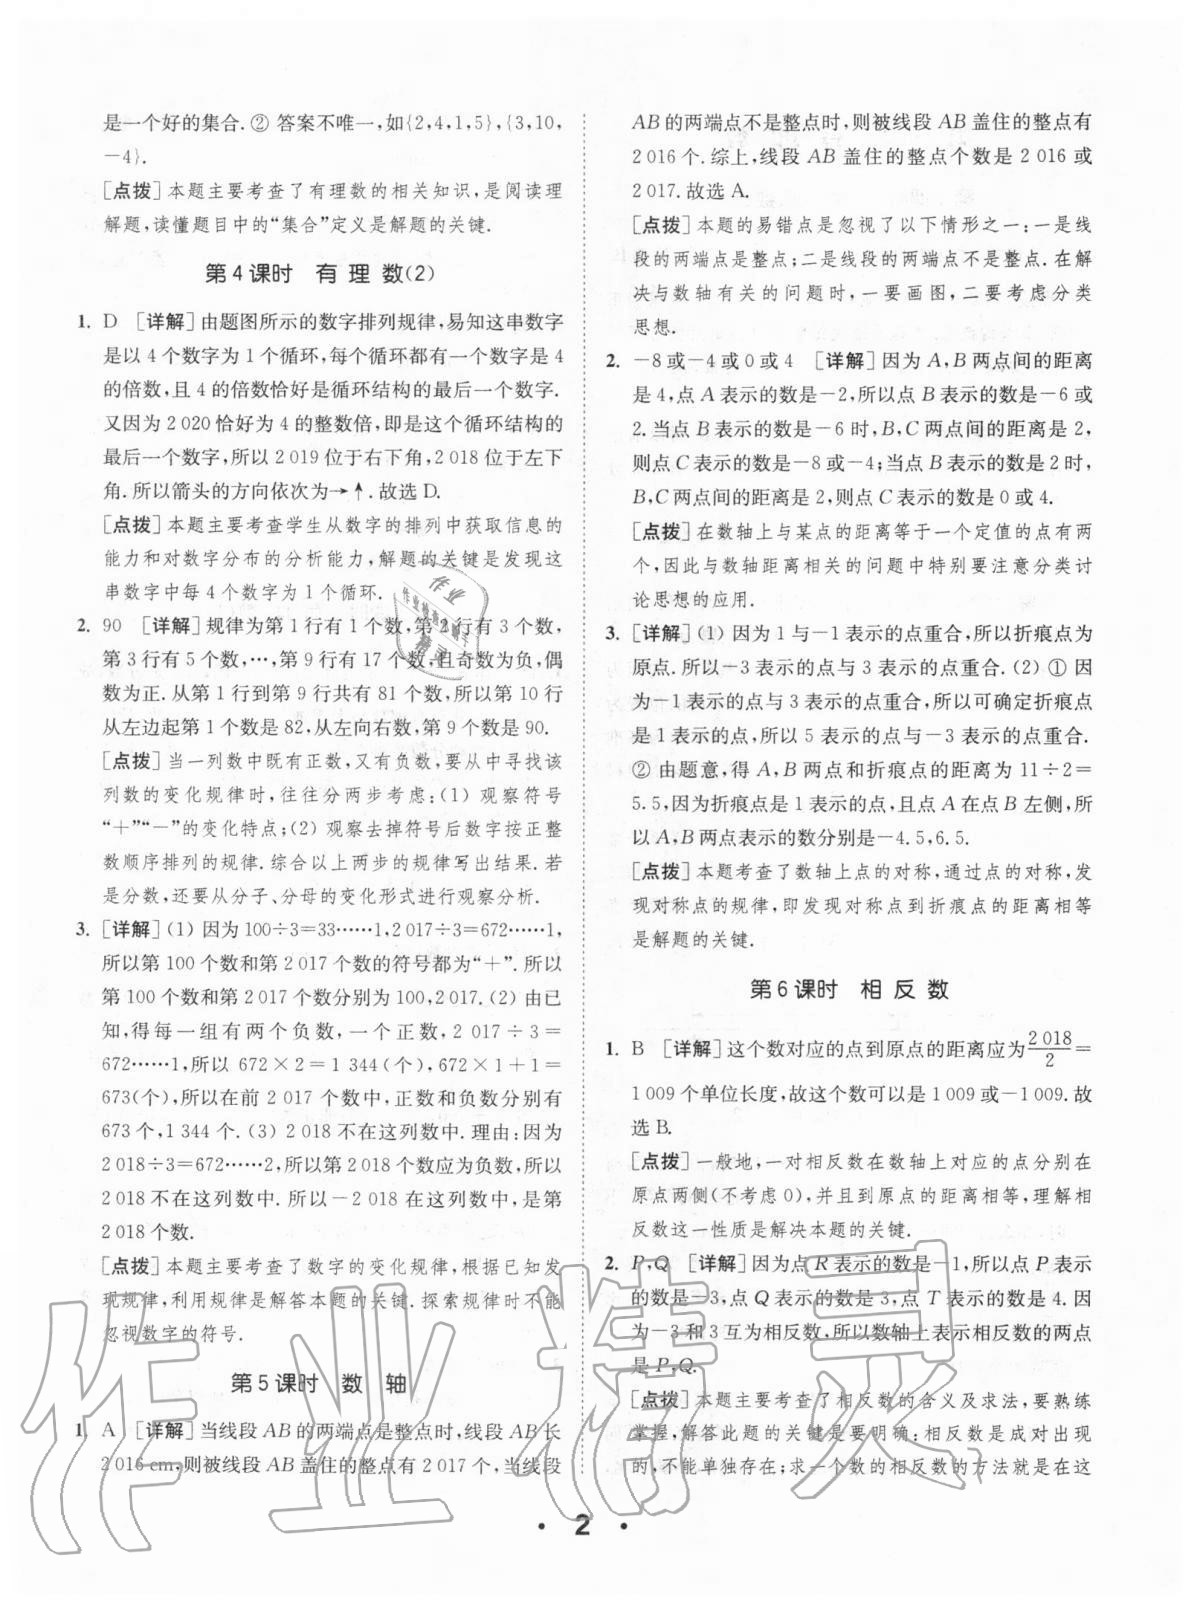 是一个好的集合.② 答案不唯一,如{2,4,1,5},{3,10,
−4}.
[点拨]本题主要考查了有理数的相关知识,是阅读理
解题,读懂题目中的“集合”定义是解题的关键.
第4课时 有理数(2)
1. D [详解]由题图所示的数字排列规律,易知这串数字
是以4个数字为1个循环,每个循环都有一个数字是4
的倍数,且4的倍数恰好是循环结构的最后一个数字.
又因为2 020恰好为4的整数倍,即是这个循环结构的
最后一个数字,所以2 019位于右下角,2 018位于左下
角.所以箭头的方向依次为→↑.故选D.
[点拨]本题主要考查学生从数字的排列中获取信息的
能力和对数字分布的分析能力,解题的关键是发现这
串数字中每4个数字为1个循环.
2. 90 [详解]规律为第1行有1个数,第2行有3个数,
第3行有5个数,…,第9行有17个数,且奇数为负,偶
数为正.从第1行到第9行共有81个数,所以第10行
从左边起第1个数是82,从左向右数,第9个数是90.
[点拨]当一列数中既有正数,又有负数,要从中寻找该
列数的变化规律时,往往分两步考虑:(1)观察符号
“＋”“－”的变化特点;(2)观察去掉符号后数字按正整
数顺序排列的规律.综合以上两步的规律写出结果.若
是分数,还要从分子、分母的变化形式进行观察分析.
3. [详解](1)因为100÷3=33……1,2 017÷3=672……1,
所以第100个数和第2 017个数的符号都为“＋”.所以
第100个数和第2 017个数分别为100,2 017.(2)由已
知,得每一组有两个负数,一个正数,2 017÷3=
672……1,所以672×2=1 344(个),672×1+1=
673(个),所以在前2 017个数中,正数和负数分别有
673个,1 344个.(3)2 018不在这列数中.理由:因为
2 018÷3=672……2,所以第2 018个数应为负数,所以
2 018不在这列数中.所以−2 018在这列数中,是第
2 018个数.
[点拨]本题主要考查了数字的变化规律,根据已知发
现规律,利用规律是解答本题的关键.探索规律时不能
忽视数字的符号.
第5课时 数轴
1. A [详解]当线段AB的两端点是整点时,线段AB长
2 016 cm,则被线段AB盖住的整点有2 017个,当线段
AB的两端点不是整点时,则被线段AB盖住的整点有
2 016个.综上,线段AB盖住的整点个数是2 016或
2 017.故选A.
[点拨]本题的易错点是忽视了以下情形之一:一是线
段的两端点是整点;二是线段的两端点不是整点.在解
决与数轴有关的问题时,一要画图,二要考虑分类
思想.
2. −8或−4或0或4 [详解]因为A,B两点间的距离
是4,点A表示的数是−2,所以点B表示的数是−6或
2.当点B表示的数是−6时,B,C两点间的距离是2,
则点C表示的数是−8或−4;当点B表示的数是2时,
B,C两点间的距离是2,则点C表示的数是0或4.
[点拨]在数轴上与某点的距离等于一个定值的点有两
个,因此与数轴距离相关的问题中特别要注意分类讨
论思想的应用.
3. [详解](1)因为1与−1表示的点重合,所以折痕点为
原点.所以−3表示的点与3表示的点重合.(2)①因
为−1表示的点与3表示的点重合,所以可确定折痕点
是1表示的点,所以5表示的点与−3表示的点重合.
②由题意,得A,B两点和折痕点的距离为11÷2=
5.5,因为折痕点是1表示的点,且点A在点B左侧,所
以A,B两点表示的数分别是−4.5,6.5.
[点拨]本题考查了数轴上点的对称,通过点的对称,发
现对称点的规律,即发现对称点到折痕点的距离相等
是解题的关键.
第6课时 相反数
1. B [详解]这个数对应的点到原点的距离应为2 018/2=
1 009个单位长度,故这个数可以是1 009或−1 009.故
选B.
[点拨]一般地,一对相反数在数轴上对应的点分别在
原点两侧(不考虑0),并且到原点的距离相等,理解相
反数这一性质是解决本题的关键.
2. P,Q [详解]因为点R表示的数是−1,所以点P表示
的数是−3,点Q表示的数是3,点T表示的数是4.因
为−3和3互为相反数,所以数轴上表示相反数的两点
是P,Q.
[点拨]本题主要考查了相反数的含义及求法,要熟练
掌握,解答此题的关键是要明确:相反数是成对出现
的,不能单独存在;求一个数的相反数的方法就是在这
• 2 •
作业精灵